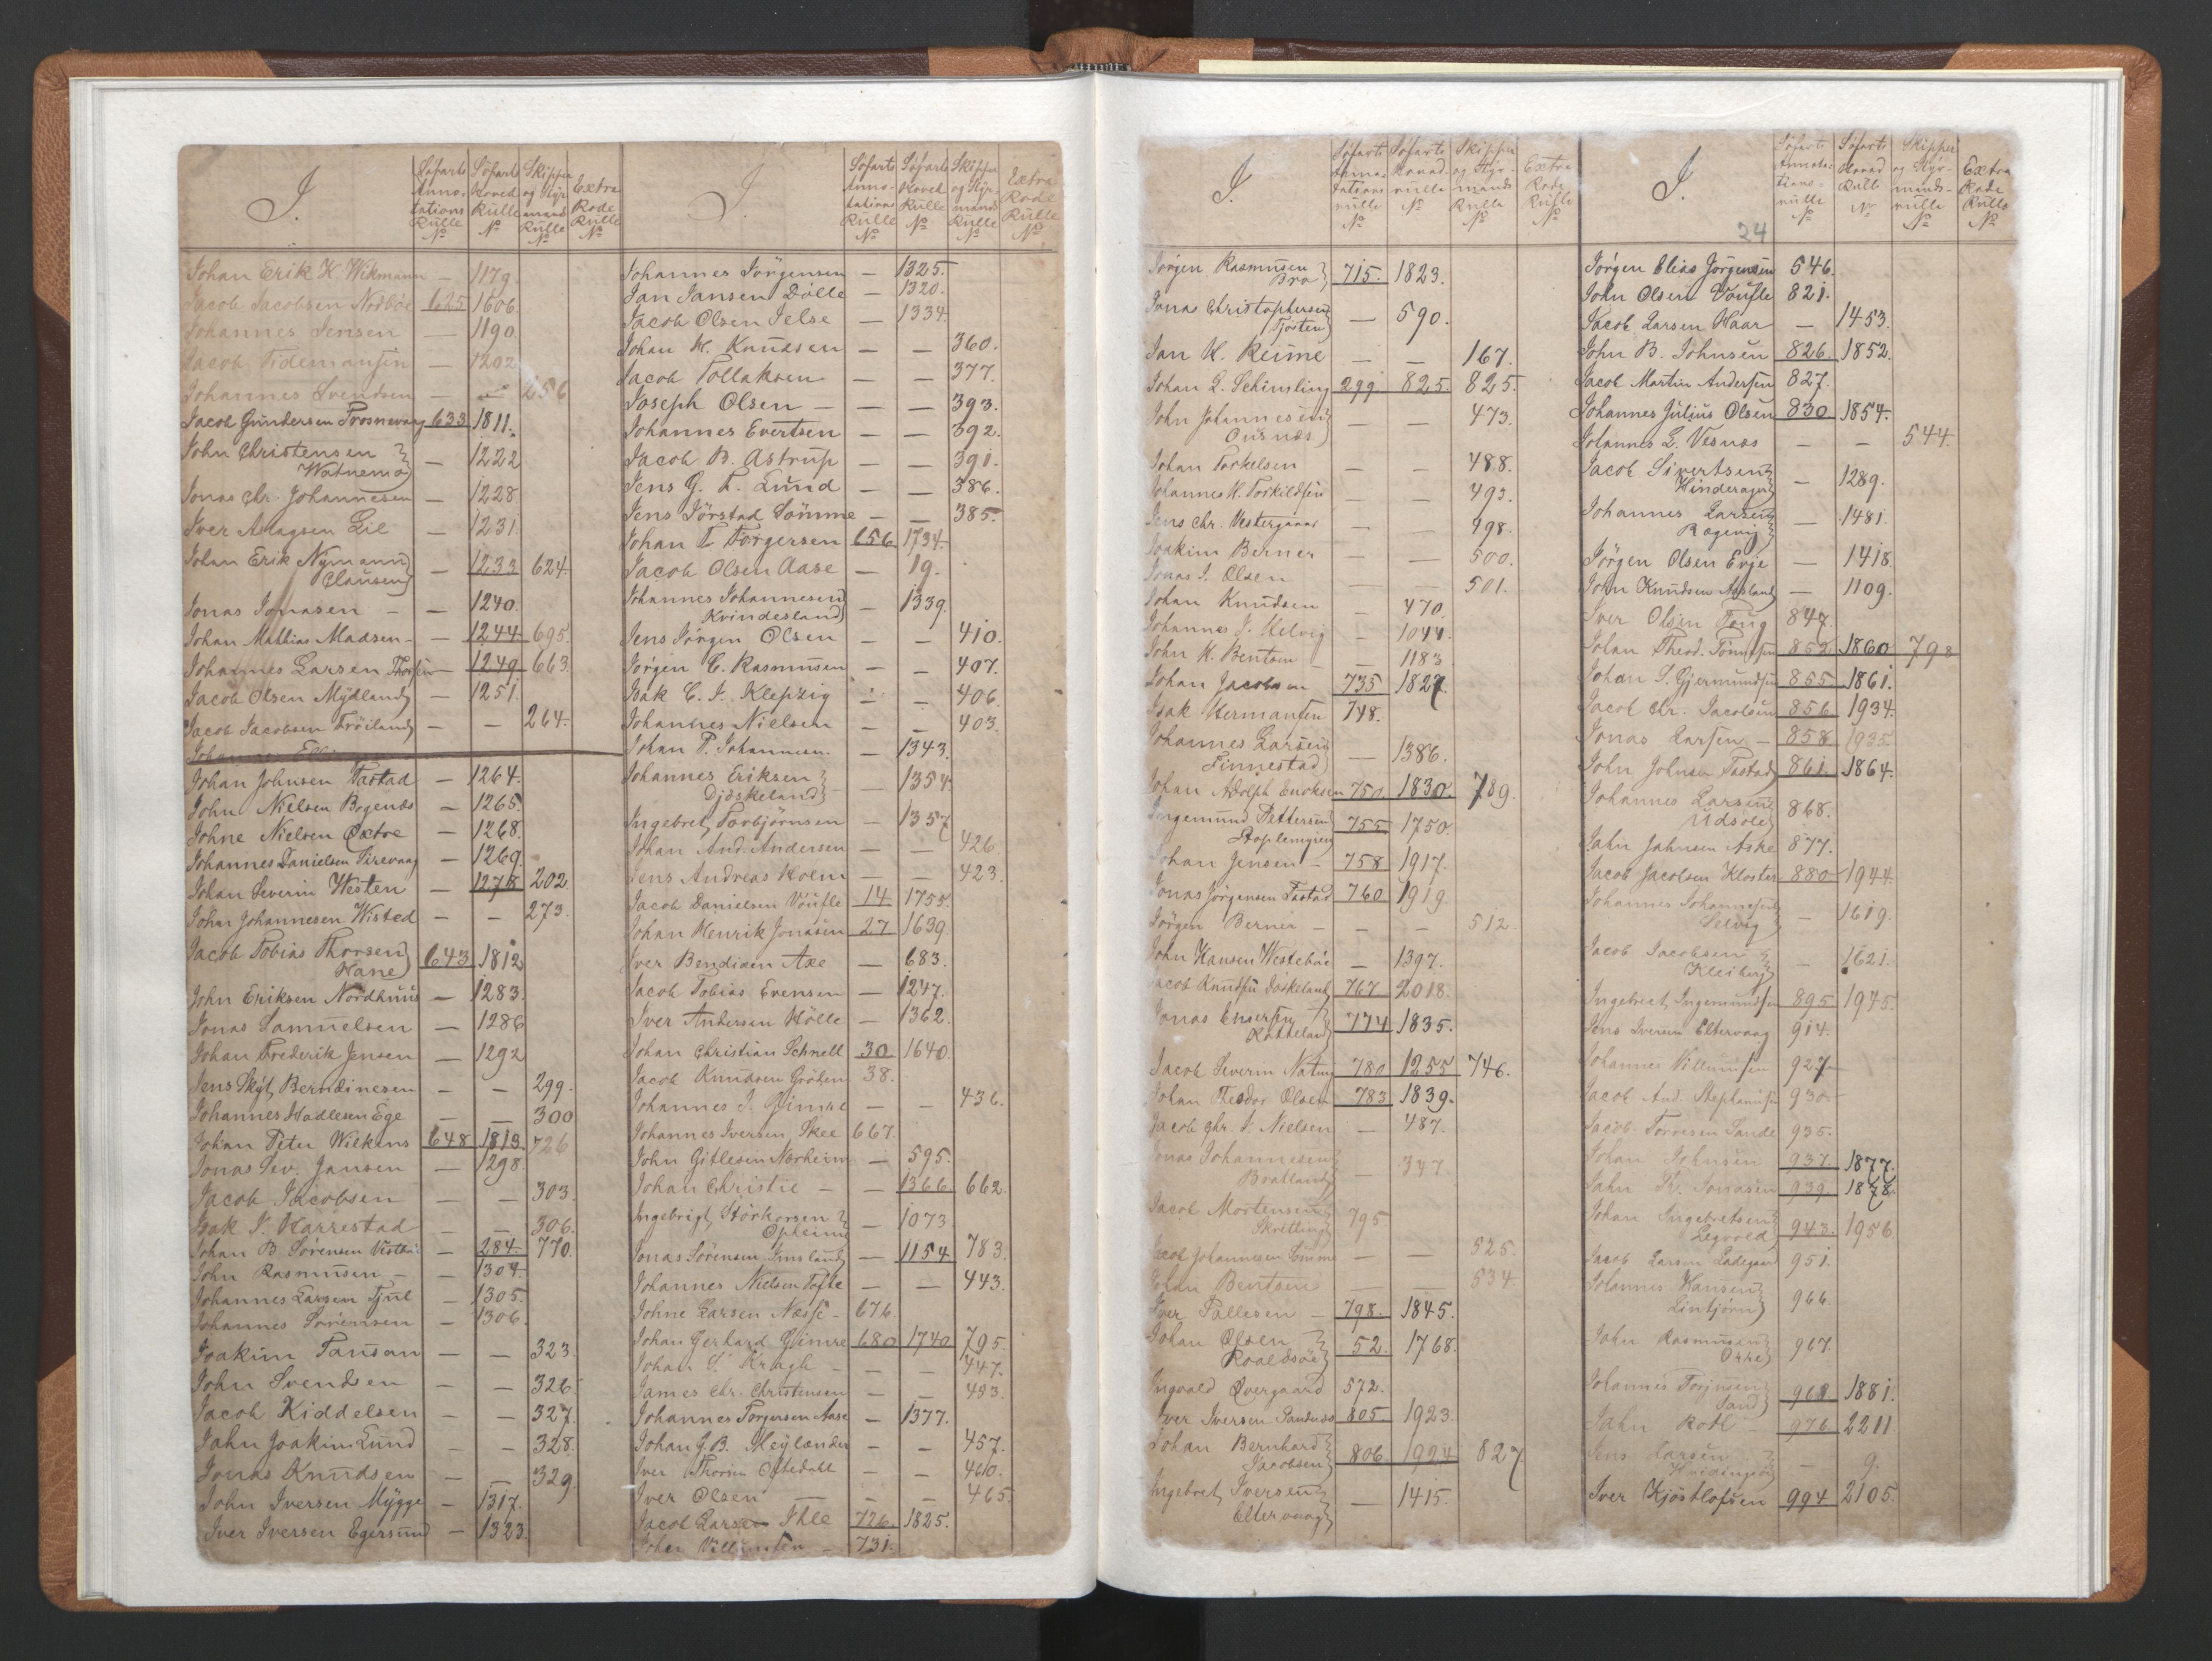 J.
Søfarts Annotations Rulle No
Søfarts Hoved Rulle No
Skipper og Styrmands Rulle No
Extra Rode Rulle No
Johan Erik K. Wikmann — 1179.
Jacob Jacobsen Nordbøe 625 1606.
Johannes Jensen — 1190.
Jacob Tidemansen — 1202
Johannes Svendsen — — 256
Jacob Gundersen Trosnevaag 633 1811.
John Christensen
Watnemo — 1222
Jonas Chr. Johannesen — 1228
Iver Aslagsen Lie — 1231
Johan Erik Nymann
Clausen — 1233 624.
Jonas Jonasen — 1240.
Johan Mathias Madsen — 1244 695.
Johannes Larsen — 1249. 663.
Jacob Olsen Mydland — 1251.
Jacob Jacobsen Frøiland — — 264.
Johan Johnsen Tastad — 1264.
John Nielsen Bogenæs — 1265.
Johne Nielsen Oxtre — 1268.
Johannes Danielsen Sirevaag — 1269.
Johan Severin Westen — 1278 202.
John Johannesen Wisted — — 273.
Jacob Tobias Thorsen
Hane 643 1812
John Eriksen Nordhuus — 1283.
Jonas Samuelsen — 1286
Johan Frederik Jensen — 1292
Jens Skyt Berndinesen — — 299.
Johannes Hadlesen Ege — — 300
Johan Peter Wilkens 648 1813 726
Jonas Sev. Jansen — 1298
Jacob Jacobsen — — 303.
Isak I. Harrestad — — 306.
Johan B. Sörensen — 284. 770.
John Rasmusen — 1304.
Johannes Larsen Tjul — 1305.
Johannes Sörensen — 1306.
Joakim Tausan — — 323.
John Svendsen — — 326.
Jacob Kiddelsen — — 327.
Jahn Joakim Lund — — 328.
Jonas Knudsen — — 329.
John Iversen Mygge — 1317.
Iver Iversen Egersund — 1323.
J.
Søfarts Annotations Rulle No
Søfarts Hoved Rulle No
Skipper og Styrmands Rulle No
Extra Rode Rulle No
Johannes Jörgensen — 1325.
Jan Jansen Dölle — 1320.
Jacob Olsen Jelse — 1334.
Johan H. Knudsen — — 360.
Jacob Tollaksen — — 377.
Joseph Olsen — — 393.
Johannes Evertsen — — 392.
Jacob B. Astrup — — 391.
Jens G. F. Lund — — 386.
Jens Jörstad Sömme — — 385.
Johan T. Torgersen 656 1734.
Jacob Olsen Aase — 19.
Johannes Johannesen
Kvindesland — 1339.
Jens Jörgen Olsen — — 410.
Jörgen C. Rasmusen — — 407.
Isak C. J. Klepzig — — 406.
Johannes Nielsen — — 403.
Johan P. Johannesen — 1343.
Johannes Eriksen
Djøskeland — 1354.
Ingebret Torbjörnsen — 1357
Johan And. Andersen — — 426
Jens Andreas Holm — — 423.
Jacob Danielsen Voufle 14 1755.
Johan Henrik Jonasen 27 1639.
Iver Bendixen Axe — 683.
Jacob Tobias Evensen — 1247.
Iver Andersen Hölle — 1362.
Johan Christian Schnell 30 1640.
Jacob Knudsen 38.
Johannes J. Gjimre — — 436.
Johannes Iversen Skee 667.
John Gitlesen Nærheim — 595.
Johan Christie — 1366. 662.
Ingebrigt Störkorsen
Opheim — 1073.
Jonas Sörensen Imsland — 1154 783.
Johannes Nielsen Tofte — — 443.
Johne Larsen Næsse 676.
Johan Gerhard Gjimre 680 1740 795.
Johan S. Kragh — — 447.
James Chr. Christensen — — 493.
Johannes Torgersen Aase — 1377.
Johan G. B. Meylænder — — 457.
Iver Thorsen Oftedahl — — 460.
Iver Olsen — — 465.
Jacob Larsen Ihle 726. 1825.
Johan Villumsen 731.
J.
Søfarts Annotations rulle No
Søfarts Hovedrulle No
Skipper og Styrmands Rulle No
Extra Rode Rulle No
Jörgen Rasmusen
Bro 715. 1823.
Jonas Christophersen
Tjosten — 590.
Jan H. Reime — — 167.
Johan L. Schimling 299. 825. 825.
John Johannesen
Ousnæs — — 473.
Johan Torkelsen — — 488.
Johannes H. Torkildsen — — 493.
Jens Chr. Vestergaard — — 498.
Joakim Berner — — 500.
Jonas J. Olsen — — 501.
Johan Knudsen — 470.
Johannes J. Helvig — 1044.
John H. Bentsen — 1183
Johan Jacobsen 735 1827.
Isak Hermansen 748.
Johannes Larsen
Finnestad — 1386.
Johan Adolph Enoksen 750. 1830. 789.
Ingemund Pettersen
755 1750.
Johan Jensen 758 1917.
Jonas Jörgensen Tastad 760 1919
Jörgen Berner — — 512.
John Hansen Westebøe — 1397.
Jacob Knudsen 767 2018.
Jonas Enoksen
774 1835.
Jacob Severin Natvig 780 1255 746.
Johan Theodor Olsen 783 1839.
Jacob Chr. S. Nielsen — 487.
Jonas Johannesen
Bratland — 347.
Jacob Mortensen
Skretting 795.
Jacob Johannesen Sömme — — 525.
Johan Bentsen — — 534.
Iver Pallesen 798. 1845.
Johan Olsen
Roaldsøe 52. 1768.
Ingvald Overgaard 572.
Iver Iversen Sandnæs 805. 1923.
Johan Bernhard
Jacobsen 806. 1924 827
Ingebret Iversen
Eltervaag — 1415.
J.
24
Søfarts Annotations rulle No
Søfarts Hoved Rulle No
Skipper og Styrmands rulle No
Extra Rode Rulle No
Jörgen Elias Jörgensen 546.
John Olsen Voufle 821.
Jacob Larsen Haar — 1453.
John B. Johnsen 826. 1852.
Jacob Martin Andersen 827.
Johannes Julius Olsen 830 1854.
Johannes L. Vesnæs — — 544.
Jacob Sivertsen
Hinderager — 1289.
Johannes Larsen
Rægevig — 1481.
Jörgen Olsen Erje — 1418.
John Knudsen Aasland — 1109.
Iver Olsen Toug 847.
Johan Theod. Tönnesen 852 1860 798
Johan S. Gjermundsen 855. 1861.
Jacob Chr. Jacobsen 856 1934.
Jonas Larsen 858. 1935.
John Johnsen Tastad 861. 1864.
Johannes Larsen
Udsole 868.
Jahn Jahnsen Aske 877.
Jacob Jacobsen Kloster 880 1944.
Johannes Johannesen
Selvig — 1619.
Jacob Jacobsen
Kleiberg — 1621.
Ingebret Ingemundsen 895 1945.
Jens Iversen Eltervaag 914.
Johannes Villumsen 927
Jacob And. Stephansen 930
Jacob Torresen Sande 935.
Johan Johnsen 937. 1877.
Jahn Th. Jonasen 939. 1878.
Johan Ingebretsen
Legvold 943. 1956
Jacob Larsen Ladegaard 951.
Johannes Hansen
Lintjörn 966.
Jahn Rasmusen
967.
Johannes Torjusen
Sand 968 1881.
Jahn Roth 976. 2211
Jens Larsen
— 9.
Iver Kjöstlofsen 994 2105.